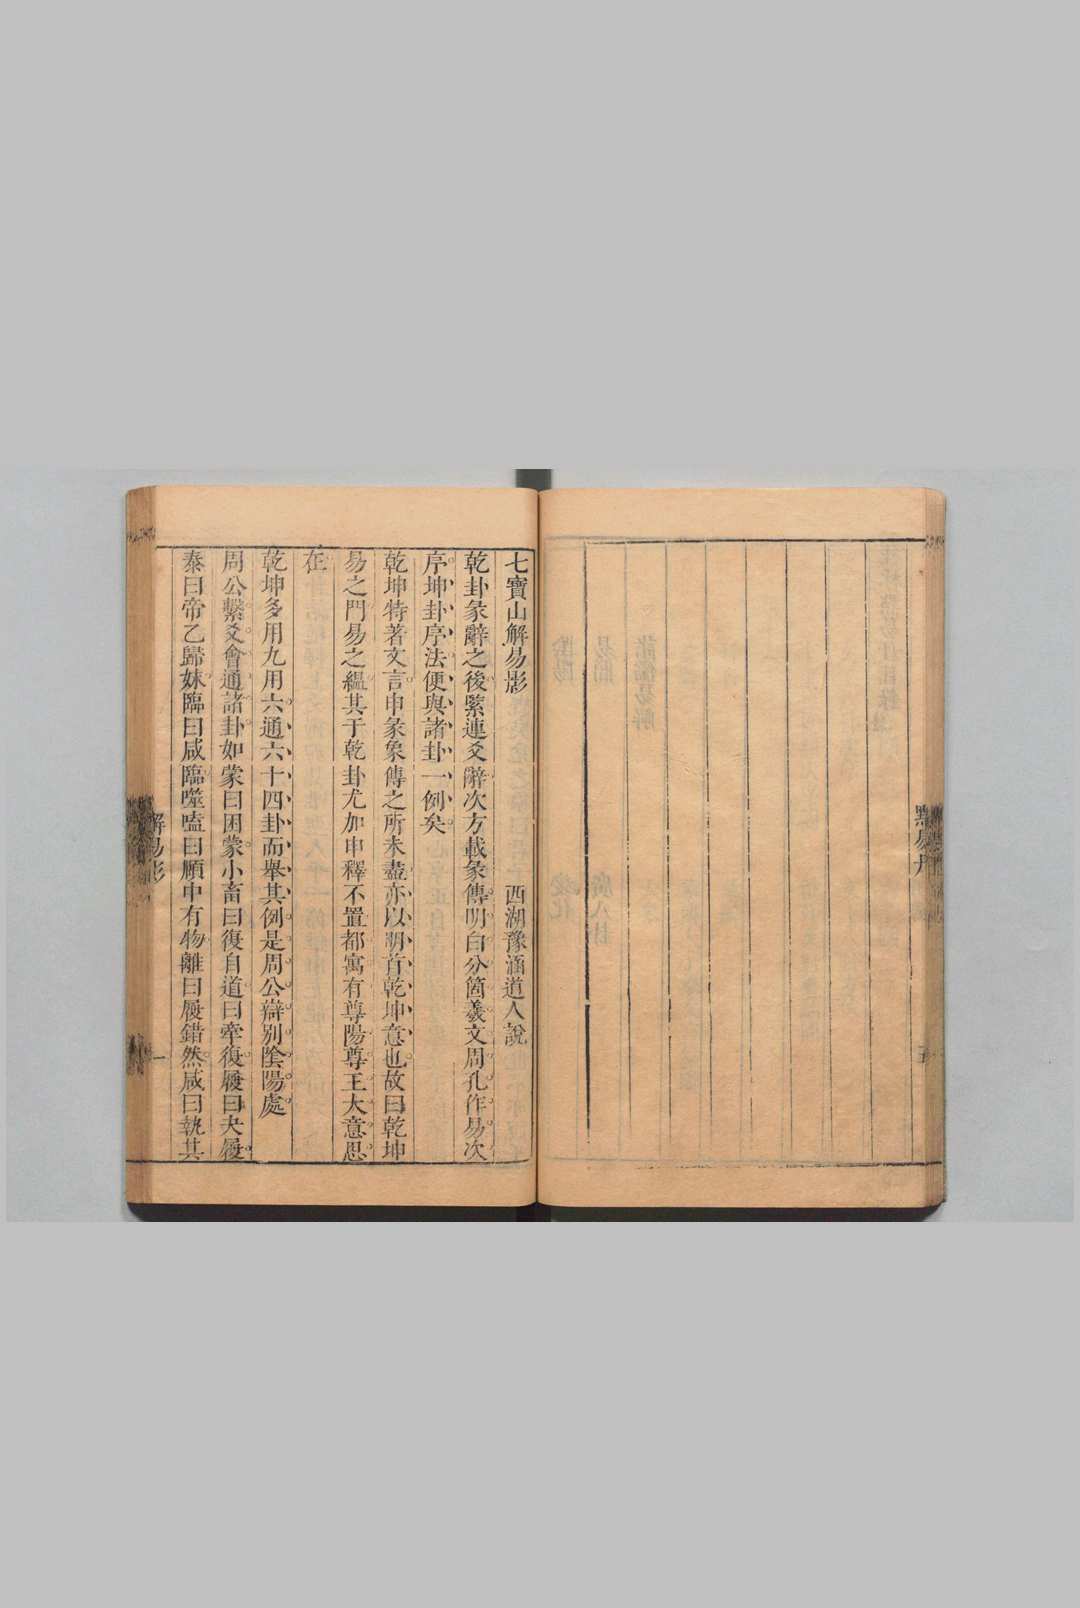 點易丹
五
七寶山解易影　西湖豫涵道人說
乾卦彖辭之後緊連爻辭次方載彖傳明白分箇羲文周孔作易次
序坤卦序法便與諸卦一例矣
乾坤特著文言申彖象傳之所未盡亦以朙首乾坤意也故曰乾坤
易之門易之緼其于乾卦尤加申釋不置都寓有尊陽尊王大意思
在
乾坤多用九用六通六十四卦而舉其例是周公辯別陰陽處
周公繫爻會通諸卦如蒙曰困蒙小畜曰復自道曰牽復履曰夬履
泰曰帝乙歸妹臨曰咸臨噬嗑曰頤中有物離曰履錯然咸曰執其
解易影
一